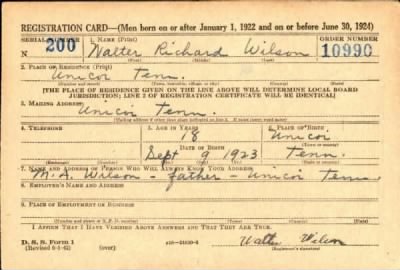 REGISTRATION CARD—(Men born on or after January 1, 1922 and on or before June 30, 1924)
SERIAL NUMBER 1. NAME (Print) ORDER NUMBER
N 200 Walter Richard Wilson 10990
(First) (Middle) (Last)
2. PLACE OF RESIDENCE (Print)
Unicoi Tenn.
(State)
[THE PLACE OF RESIDENCE GIVEN ON THE LINE ABOVE WILL DETERMINE LOCAL BOARD
JURISDICTION; LINE 2 OF REGISTRATION CERTIFICATE WILL BE IDENTICAL]
3. MAILING ADDRESS
Unicoi Tenn.
[Mailing address if other than place indicated on line 2. If same insert word same]
4. TELEPHONE 5. AGE IN YEARS 6. PLACE OF BIRTH
18 Unicoi
DATE OF BIRTH (Town or county)
Sept 9 1923 Tenn.
(Exchange) (Number) (Mo.) (Day) (Yr.) (State or country)
7. NAME AND ADDRESS OF PERSON WHO WILL ALWAYS KNOW YOUR ADDRESS
M. A. Wilson - Father - Unicoi Tenn
8. EMPLOYER'S NAME AND ADDRESS
9. PLACE OF EMPLOYMENT OR BUSINESS
(Number and street or R. F. D. number) (Town) (County) (State)
I AFFIRM THAT I HAVE VERIFIED ABOVE ANSWERS AND THAT THEY ARE TRUE.
D. S. S. Form 1 Walter Wilson
(over)